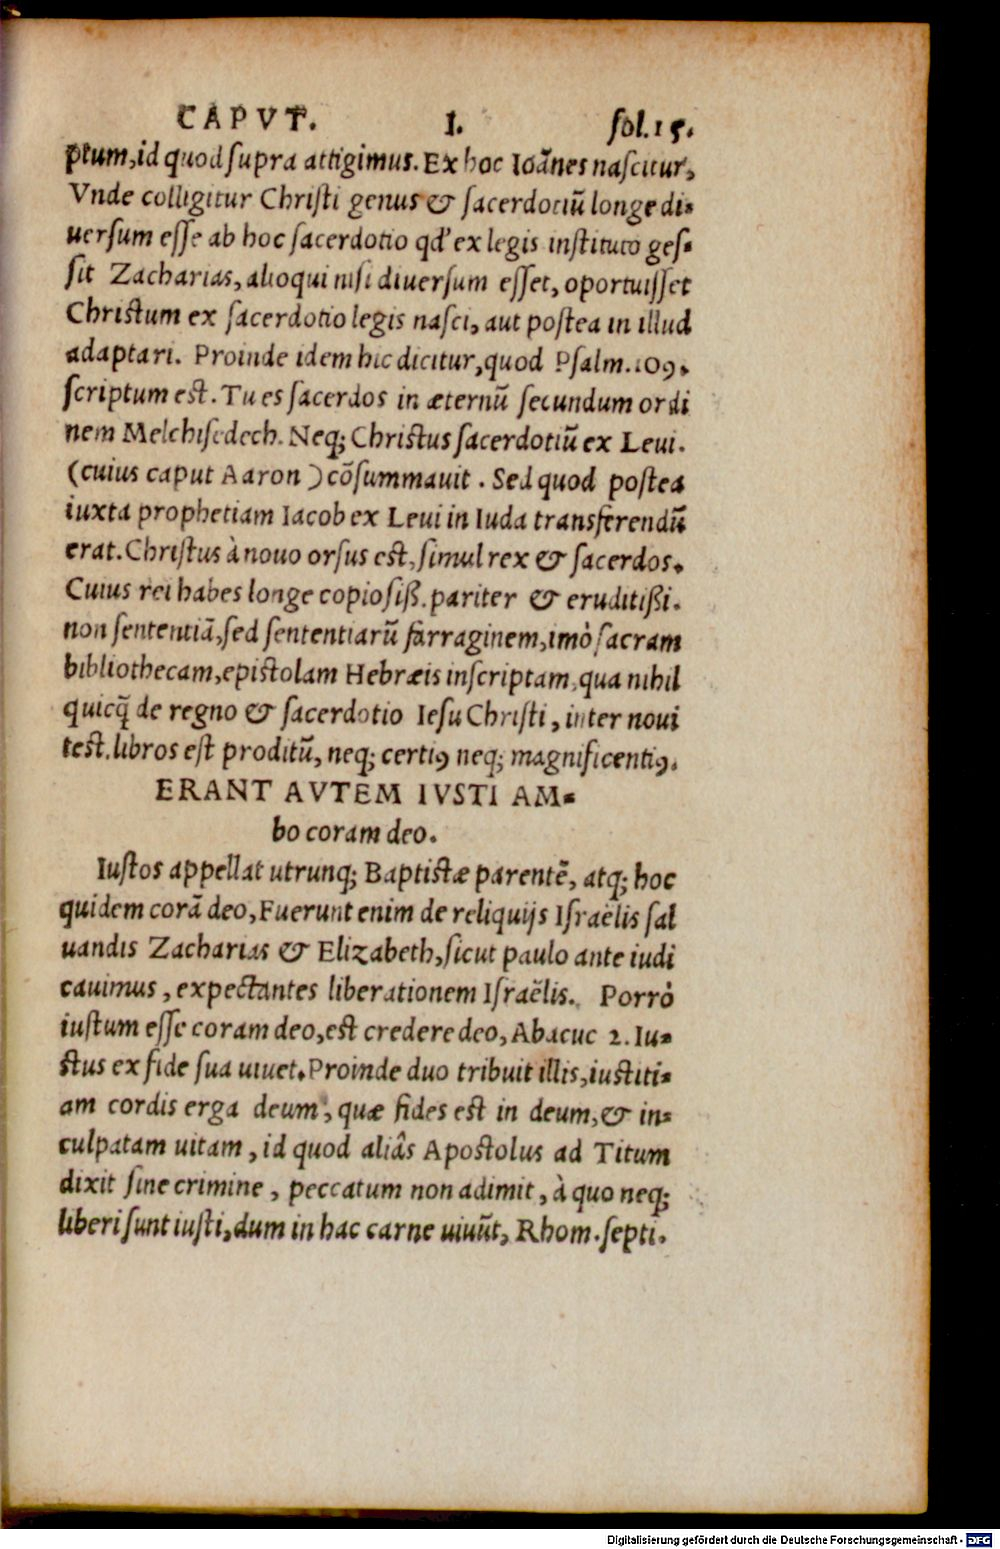 CAPVT. I. fol.15.
ptum,id quod supra attigimus. Ex hoc Ioãnes nascitur,
Vnde colligitur Christi genus & sacerdotiũ longe di-
uersum esse ab hoc sacerdotio qđ ex legis instituto ges-
sit Zacharias, alioqui nisi diuersum esset, oportuisset
Christum ex sacerdotio legis nasci, aut postea in illud
adaptari. Proinde idem hic dicitur,quod Psalm.109.
scriptum est. Tu es sacerdos in æternũ secundum ordi
nem Melchisedech. Neq; Christus sacerdotiũ ex Leui.
(cuius caput Aaron ) cõsummauit . Sed quod postea
iuxta prophetiam Iacob ex Leui in Iuda transferendũ
erat. Christus à nouo orsus est, simul rex & sacerdos.
Cuius rei habes longe copiosiß. pariter & eruditißi.
non sententiã,sed sententiarũ farraginem,imò sacram
bibliothecam,epistolam Hebræis inscriptam,qua nihil
quicq̃ de regno & sacerdotio Iesu Christi, inter noui
test.libros est proditũ, neq; certiꝰ neq; magnificentiꝰ.
ERANT AVTEM IVSTI AM-
bo coram deo.
Iustos appellat utrunq; Baptistæ parentẽ, atq; hoc
quidem corã deo,Fuerunt enim de reliquijs Israëlis sal
uandis Zacharias & Elizabeth,sicut paulo ante iudi
cauimus, expectantes liberationem Israëlis. Porrò
iustum esse coram deo,est credere deo, Abacuc 2. Iu-
stus ex fide sua uiuet.Proinde duo tribuit illis,iustiti-
am cordis erga deum, quæ fides est in deum,& in-
culpatam uitam, id quod aliâs Apostolus ad Titum
dixit sine crimine, peccatum non adimit, à quo neq;
liberi sunt iusti,dum in hac carne uiuũt, Rhom.septi.
Digitalisierung gefördert durch die Deutsche Forschungsgemeinschaft - DFG